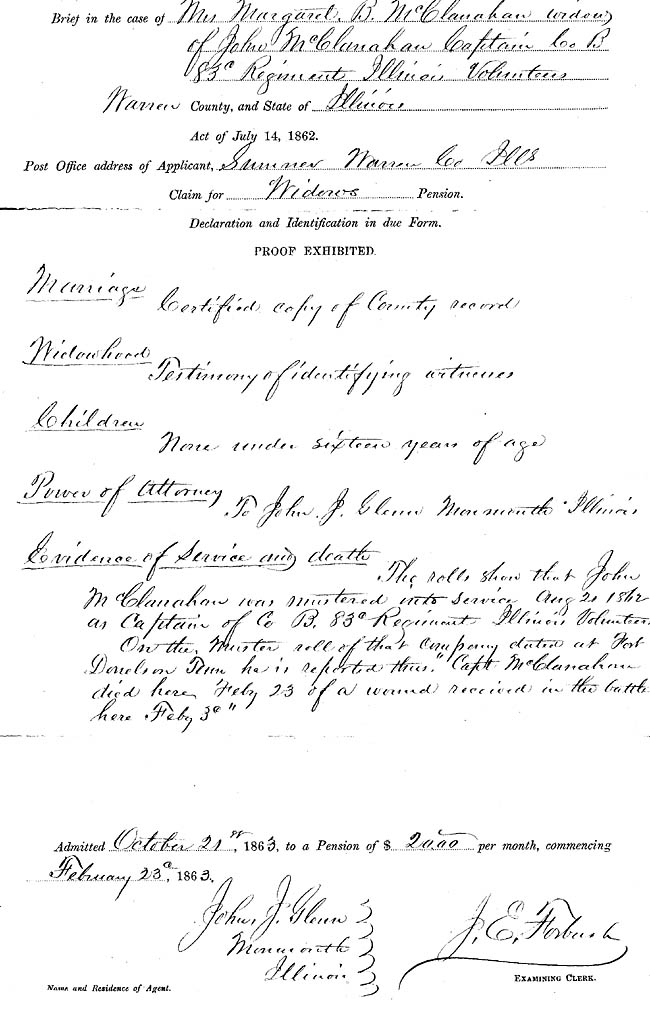 Brief in the case of Mrs Margaret. B. McClanahan widow
of John McClanahan Captain Co B
83d Regiment Illinois Volunteers
Warren County, and State of Illinois
Act of July 14, 1862.
Post Office address of Applicant, Sumner Warren Co Ills
Claim for Widows Pension.
Declaration and Identification in due Form.
PROOF EXHIBITED.
Marriage
Certified copy of County record
Widowhood
Testimony of identifying witnesses
Children
None under sixteen years of age
Power of Attorney
To John J. Glenn Monmouth Illinois
Evidence of Service and death
The rolls show that John
McClanahan was mustered into service Aug 21 1862
as Captain of Co B, 83d Regiment Illinois Volunteers
On the Muster roll of that company dated at Fort
Donelson Tenn he is reported thus. "Capt McClanahan
died here Feby 23 of a wound received in the battle
here Feby 3d"
Admitted October 21st, 1863, to a Pension of $ 20.00 per month, commencing
February 23d, 1863.
John J. Glenn
Monmouth
Illinois
J. E. Forbush
EXAMINING CLERK.
Name and Residence of Agent.